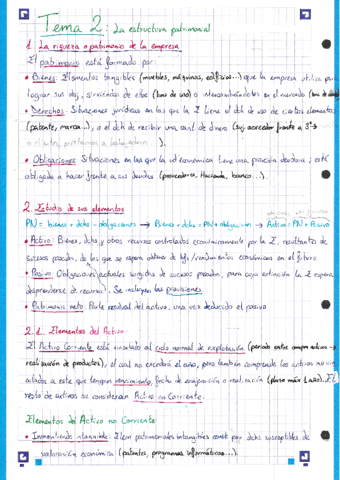 Tema 2: La estructura patrimonial
1. La riqueza o patrimonio de la empresa
El patrimonio está formado por:
• Bienes: Elementos tangibles (muebles, máquinas, edificios...) que la empresa utiliza para
lograr sus obj, sirviéndose de ellos (bns de uso) o intercambiándolos en el mercado (bns de cambio)
• Derechos: Situaciones jurídicas en las que la E tiene el dcho de uso de ciertos elementos
(patente, marca...), o el dcho de recibir una cant de dinero (suj. acreedor frente a 3º →
a clientes, préstamos a
• Obligaciones: Situaciones en las que la ud económica tiene una posición deudora, y está
obligada a hacer frente a sus deudas (proveedores, Hacienda, banco...).
2. Estudio de sus elementos
PN = bienes + dchos - obligaciones → Bienes + dchos = PN + obligacion → Activo = PN + Pasivo
• Activo: Bienes, dchos y otros recursos controlados económicamente por la E, resultantes de
sucesos pasados, de los que se espera obtener bfs/rendimientos económicos en el futuro
• Pasivo: Obligaciones actuales surgidas de sucesos pasados, para cuya extinción la E espera
desprenderse de recursos. Se incluyen las provisiones.
• Patrimonio neto: Parte residual del activo, una vez deducido el pasivo
2.1. Elementos del Activo
El Activo Corriente está vinculado al ciclo normal de explotación (periodo entre compra activos →
realización de productos), el cual no excederá el año, pero también comprende los activos no vin-
culados a este que tengan vencimiento, fecha de enajenación o realización (plazo máx 1 año). El
resto de activos se consideran Activo no Corriente.
Elementos del Activo no Corriente
• Inmovilizado intangible: Elem patrimoniales intangibles constit por dchos susceptibles de
valoración económica (patentes, programas informáticos...).